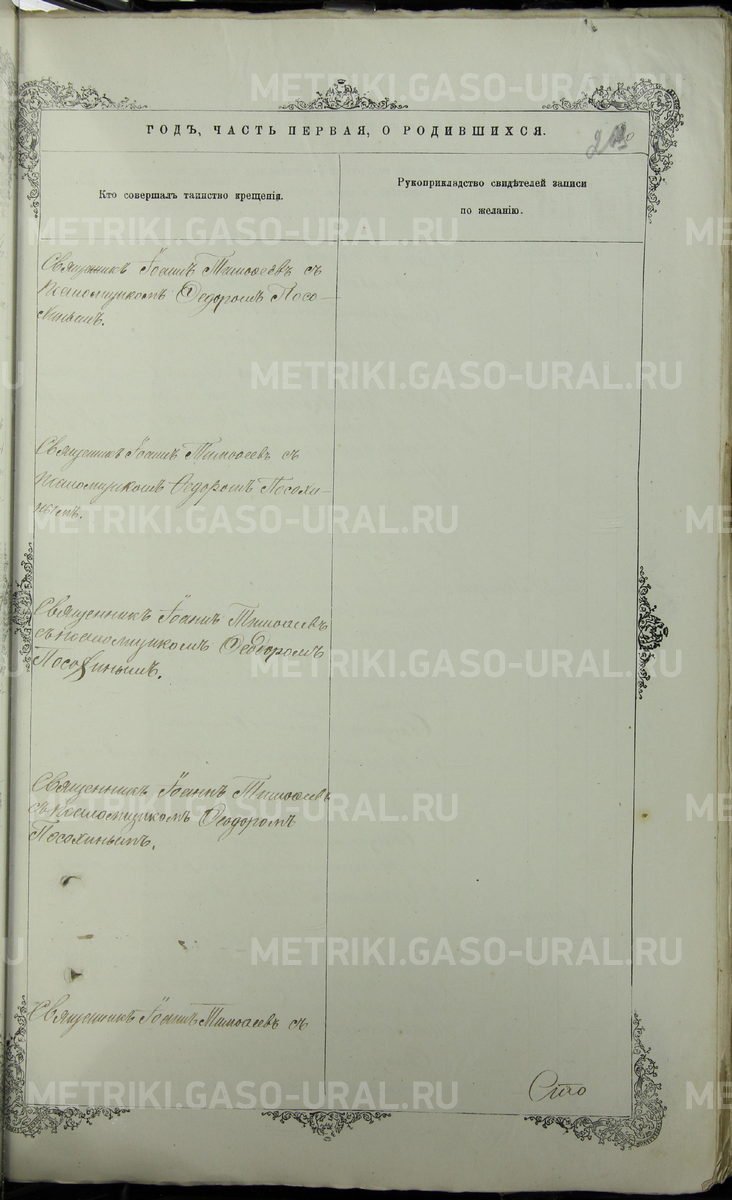 METRIKI.GASO-URAL.RU
ГОДЪ, ЧАСТЬ ПЕРВАЯ, О РОДИВШИХСЯ.
Кто совершалъ таинство крещенія.
Рукоприкладство свидѣтелей записи
по желанію.
Священникъ Іоаннъ Тимоѳеевъ съ
Псаломщикомъ Ѳедоромъ Посо-
хинымъ.
Священникъ Іоаннъ Тимоѳеевъ съ
Псаломщикомъ Ѳедоромъ Посохи-
нымъ.
Священникъ Іоаннъ Тимоѳеевъ
съ псаломщикомъ Ѳеодоромъ
Посохинымъ.
Священникъ Іоаннъ Тимоѳеевъ
съ псаломщикомъ Ѳеодоромъ
Посохинымъ.
Священникъ Іоаннъ Тимоѳеевъ съ
Сто